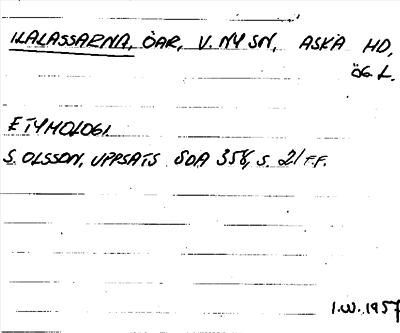 ILALASSARNA, ÖAR, V. NY SN, ASKA HD,
ÖG. L.
ETYMOLOGI
S. OLSSON, UPPSATS SOA 356, S. 21 FF.
I.W. 1957